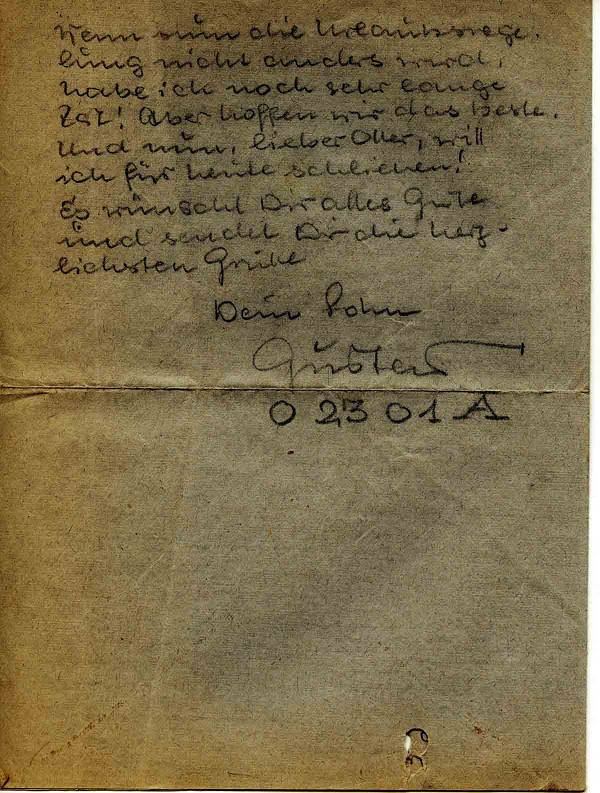 Wenn nun die Urlaubsrege-
lung nicht anders wird,
habe ich noch sehr lange
Zeit! Aber hoffen wir das beste.
Und nun, lieber Otter, will
ich für heute schließen!
Es wünscht Dir alles Gute
und sendet Dir die herz-
lichsten Grüße
Dein Sohn
Gustav
O 2301 A